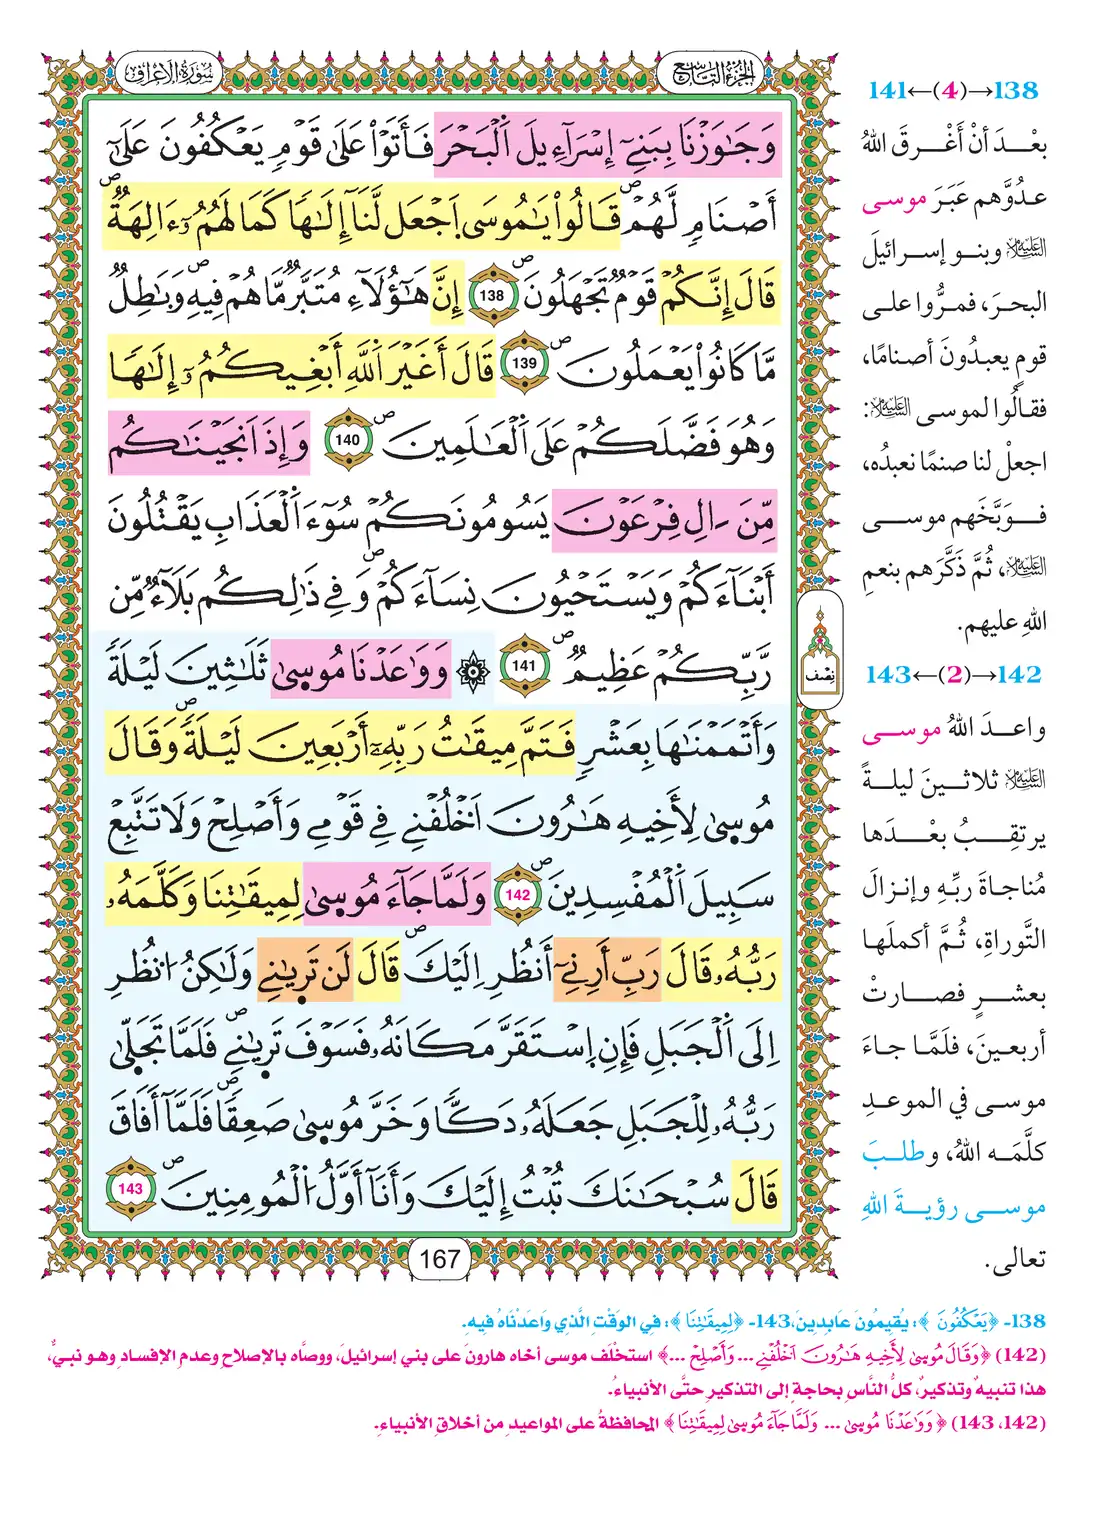 الجزء التاسع
سورة الأعراف
وَجَٰوَزْنَا بِبَنِےٓ إِسْرَآءِيلَ اَ۬لْبَحْرَ فَأَتَوْاْ عَلَىٰ قَوْمٖ يَعْكُفُونَ عَلَىٰٓ
أَصْنَامٖ لَّهُمْۖ قَالُواْ يَٰمُوسَى اَ۪جْعَل لَّنَآ إِلَٰهاٗ كَمَا لَهُمُۥٓ ءَالِهَةٞۖ
قَالَ إِنَّكُمْ قَوْمٞ تَجْهَلُونَۖ 138 إِنَّ هَٰٓؤُلَآءِ مُتَبَّرٞ مَّا هُمْ فِيهِۖ وَبَٰطِلٞ
مَّا كَانُواْ يَعْمَلُونَۖ 139 قَالَ أَغَيْرَ اَ۬للَّهِ أَبْغِيكُمُۥٓ إِلَٰهاٗ
وَهُوَ فَضَّلَكُمْ عَلَى اَ۬لْعَٰلَمِينَۖ 140 وَإِذَ اَنجَيْنَٰكُم
مِّنَ اٰلِ فِرْعَوْنَ يَسُومُونَكُمْ سُوٓءَ اَ۬لْعَذَابِ يَقْتُلُونَ
أَبْنَآءَكُمْ وَيَسْتَحْيُونَ نِسَآءَكُمْۖ وَفِے ذَٰلِكُم بَلَآءٞ مِّن
رَّبِّكُمْ عَظِيمٞۖ 141 ۞ وَوَٰعَدْنَا مُوسَىٰ ثَلَٰثِينَ لَيْلَةٗ
وَأَتْمَمْنَٰهَا بِعَشْرٖ فَتَمَّ مِيقَٰتُ رَبِّهِۦٓ أَرْبَعِينَ لَيْلَةٗۖ وَقَالَ
مُوسَىٰ لِأَخِيهِ هَٰرُونَ اَ۟خْلُفْنِے فِے قَوْمِے وَأَصْلِحْ وَلَا تَتَّبِعْ
سَبِيلَ اَ۬لْمُفْسِدِينَۖ 142 وَلَمَّا جَآءَ مُوسَىٰ لِمِيقَٰتِنَا وَكَلَّمَهُۥ
رَبُّهُۥ قَالَ رَبِّ أَرِنِےٓ أَنظُرِ اِلَيْكَۖ قَالَ لَن تَرَىٰنِے وَلَٰكِنُ اُ۟نظُرِ
إِلَى اَ۬لْجَبَلِ فَإِنِ اِ۪سْتَقَرَّ مَكَانَهُۥ فَسَوْفَ تَرَىٰنِےۖ فَلَمَّا تَجَلَّىٰ
رَبُّهُۥ لِلْجَبَلِ جَعَلَهُۥ دَكّاٗ وَخَرَّ مُوسَىٰ صَعِقاٗۖ فَلَمَّآ أَفَاقَ
قَالَ سُبْحَٰنَكَ تُبْتُ إِلَيْكَ وَأَنَآ أَوَّلُ اُ۬لْمُومِنِينَۖ 143
نصف
167
138→(4)←141
بعْدَ أنْ أَغْرقَ اللهُ
عدُوَّهم عَبَرَ موسى
عليه السلام وبنو إسرائيلَ
البحرَ، فمرُّوا على
قومٍ يعبدُونَ أصنامًا،
فقالُوا لموسى عليه السلام:
اجعلْ لنا صنمًا نعبدُه،
فوَبَّخَهم موسى
عليه السلام، ثُمَّ ذَكَّرَهم بنعمِ
اللهِ عليهم.
142→(2)←143
واعدَ اللهُ موسى
عليه السلام ثلاثينَ ليلةً
يرتقِبُ بعْدَها
مُناجاةَ ربِّهِ وإنزالَ
التَّوراةِ، ثُمَّ أكملَها
بعشرٍ فصارتْ
أربعينَ، فلَمَّا جاءَ
موسى في الموعدِ
كلَّمَه اللهُ، وطلبَ
موسى رؤيةَ اللهِ
تعالى.
138- ﴿يَعْكُفُونَ﴾: يُقِيمُونَ عَابِدِينَ، 143- ﴿لِمِيقَٰتِنَا﴾: فِي الوَقْتِ الَّذِي وَاعَدْنَاهُ فِيهِ.
(142) ﴿وَقَالَ مُوسَىٰ لِأَخِيهِ هَٰرُونَ اَ۟خْلُفْنِے ... وَأَصْلِحْ ...﴾ استخْلَف موسى أخاه هارونَ على بني إسرائيلَ، ووصَّاه بالإصلاحِ وعدمِ الإفسادِ وهو نبيٌّ،
هذا تنبيهٌ وتذكيرٌ، كلُّ النَّاسِ بحاجة إلى التذكيرِ حتَّى الأنبياءُ.
(142، 143) ﴿وَوَٰعَدْنَا مُوسَىٰ ... وَلَمَّا جَآءَ مُوسَىٰ لِمِيقَٰتِنَا﴾ المحافظةُ على المواعيدِ من أخلاقِ الأنبياءِ.